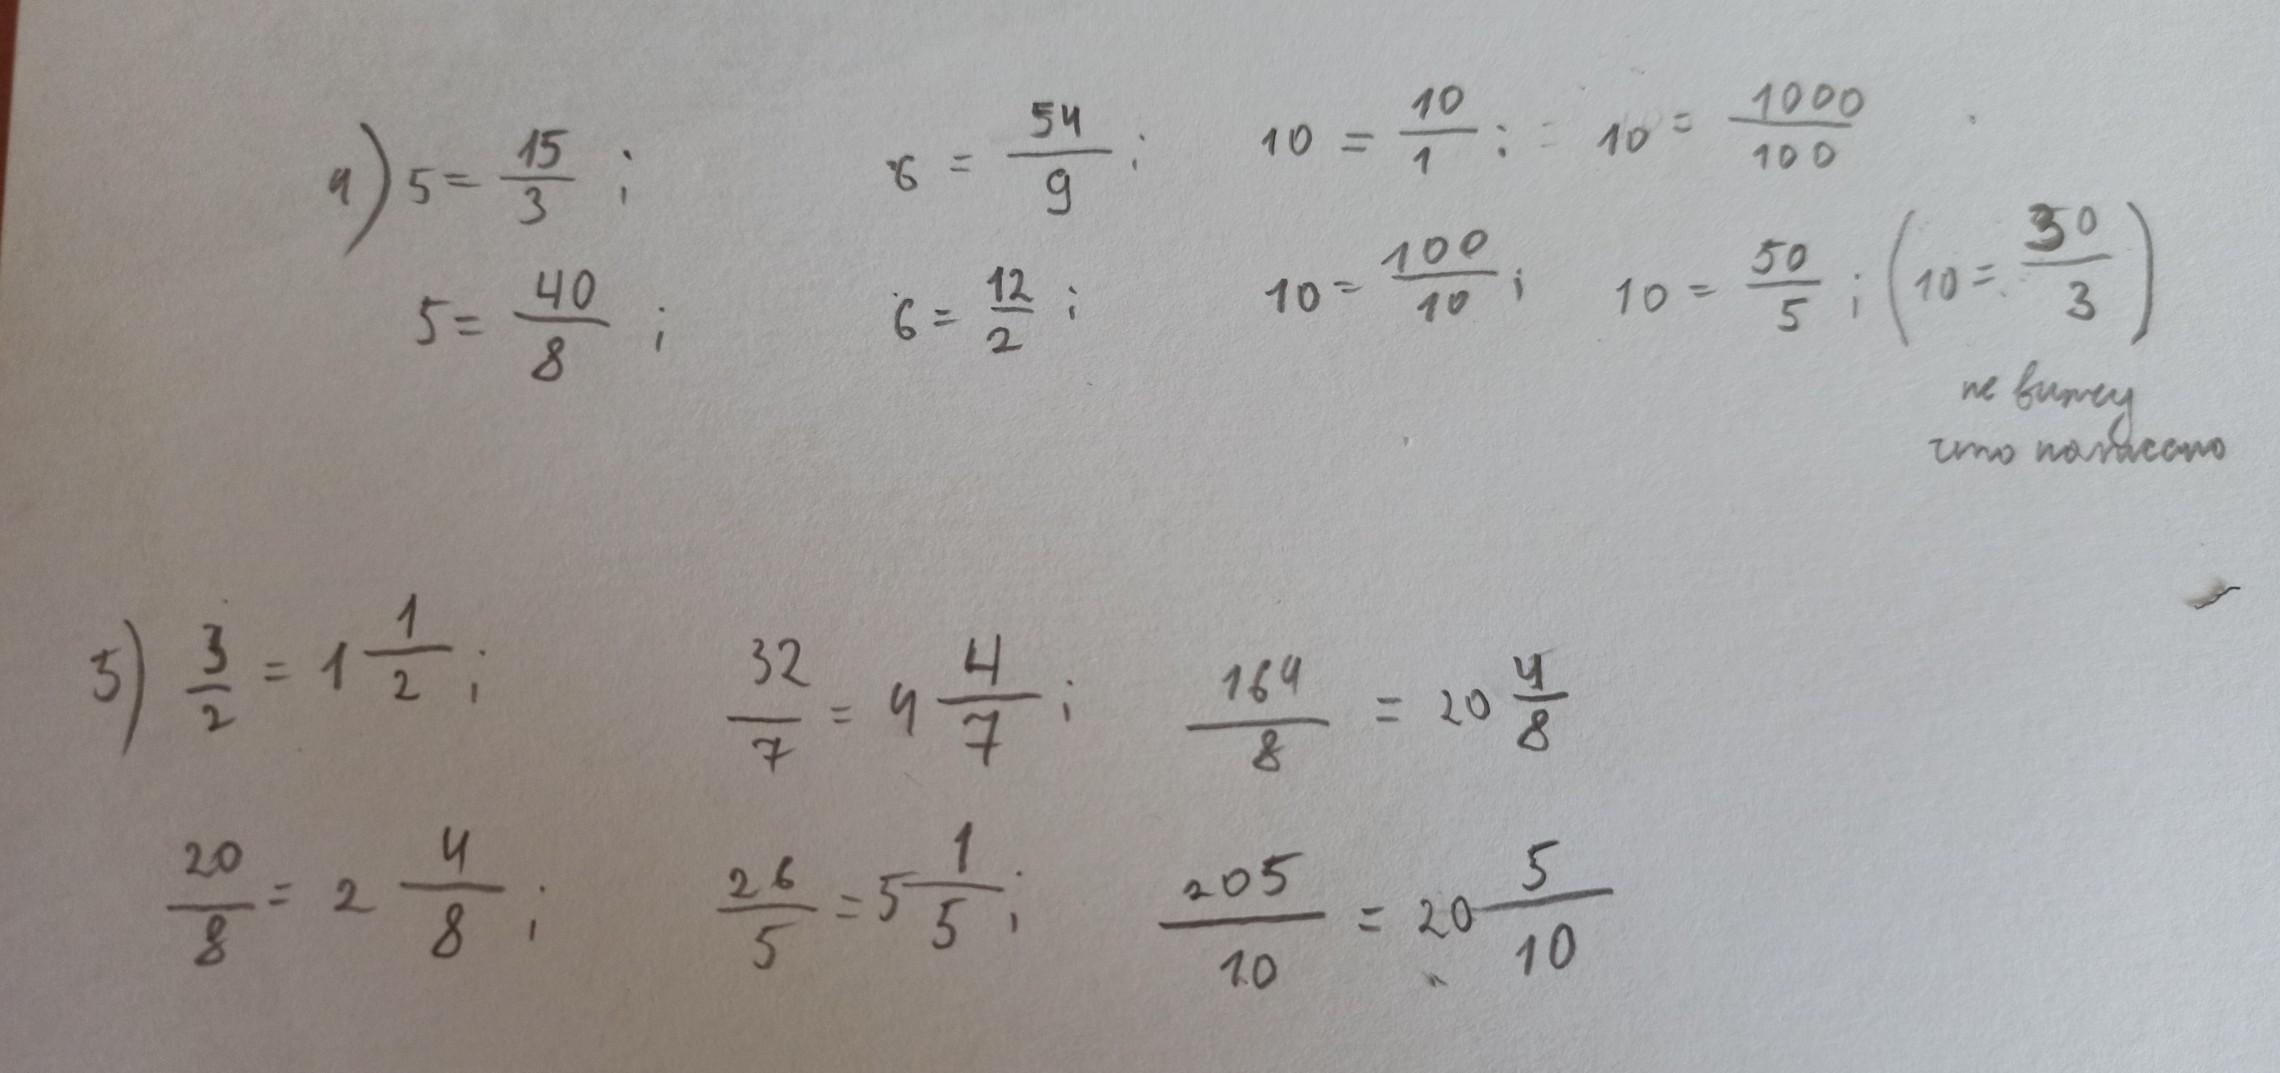 4) 5 = 15/3 ; 6 = 54/9 ; 10 = 10/1 ; = 10 = 1000/100
5 = 40/8 ; 6 = 12/2 ; 10 = 100/10 ; 10 = 50/5 ; (10 = 30/3)
не вижу
что написано
5) 3/2 = 1 1/2 ; 32/7 = 4 4/7 ; 164/8 = 20 4/8
20/8 = 2 4/8 ; 26/5 = 5 1/5 ; 205/10 = 20 5/10